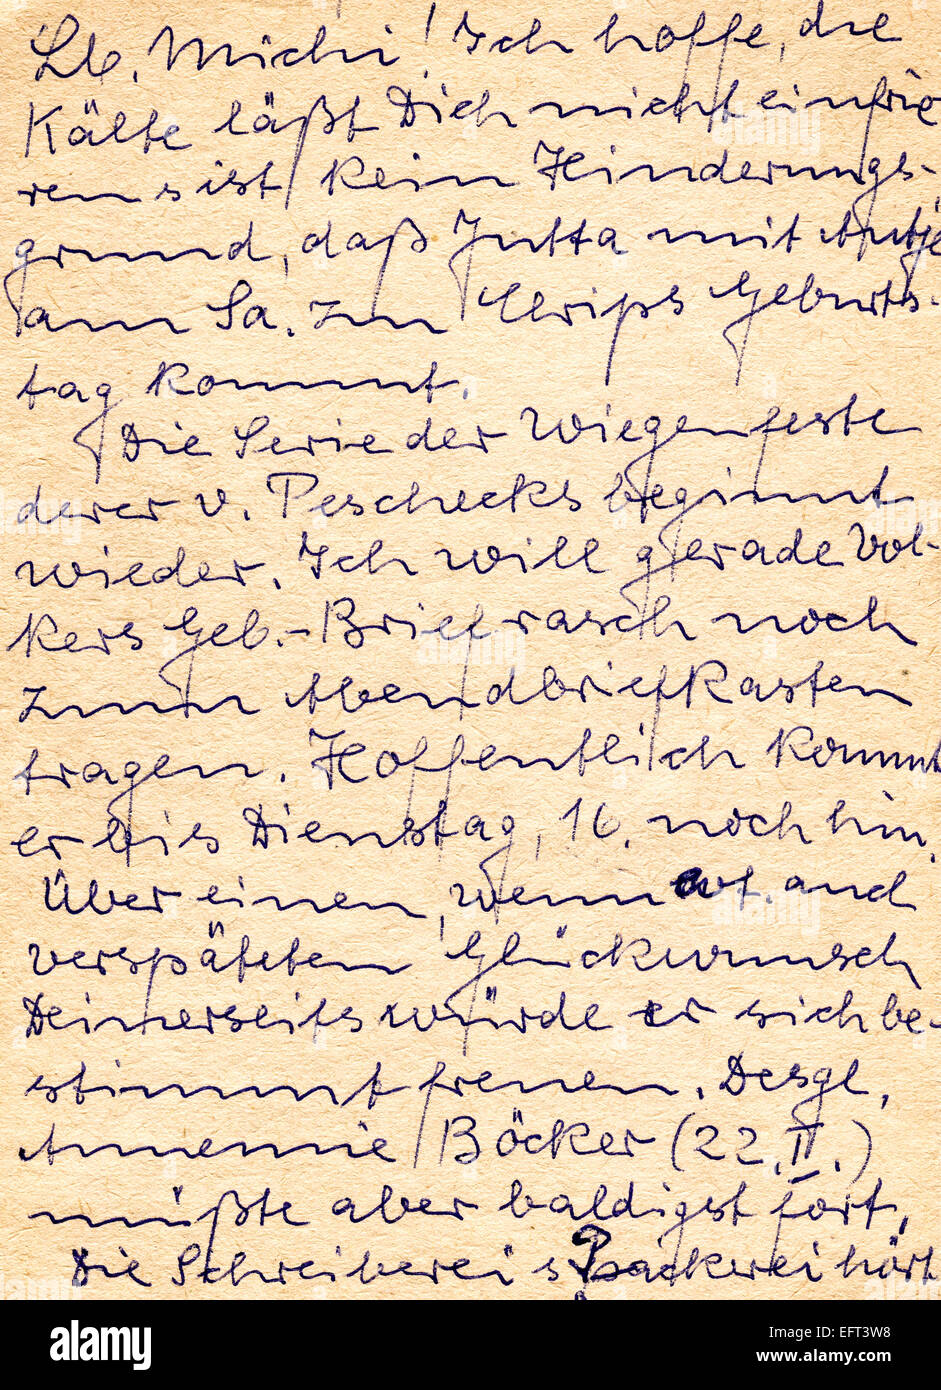 Lb. Michi! Ich hoffe, die
Kälte läßt Dich nicht einfrie
ren s ist kein Hinderungs-
grund, daß Jutta mit Antje
am Sa. zum Chrips Geburts-
tag kommt.
Die Serie der Wiegenfeste
derer v. Peschecks beginnt
wieder. Ich will gerade Vol-
kers Geb.-Brief rasch noch
zum Abendbriefkasten
tragen. Hoffentlich kommt
er bis Dienstag, 16. noch hin.
Über einen, wenn auch
verspäteten Glückwunsch
Deinerseits würde er sich be-
stimmt freuen. Desgl.
Annemie Böcker (22.II.)
müßte aber baldigst fort.
Die Schreiberei hört
alamy
Image ID: EFT3W8
www.alamy.com